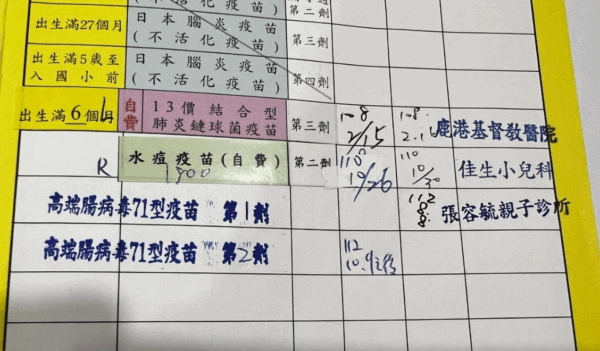 第二劑
出生滿27個月 日本腦炎疫苗 (不活化疫苗) 第三劑
出生滿5歲至入國小前 日本腦炎疫苗 (不活化疫苗) 第四劑
出生滿6個月 自費 13價結合型肺炎鏈球菌疫苗 第三劑 108 2/15 108 鹿港基督教醫院
水痘疫苗(自費) 1800 第二劑 110 10/26 110 10/30 佳生小兒科
高端腸病毒71型疫苗 第1劑 112 8 8 張容毓親子診所
高端腸病毒71型疫苗 第2劑 112